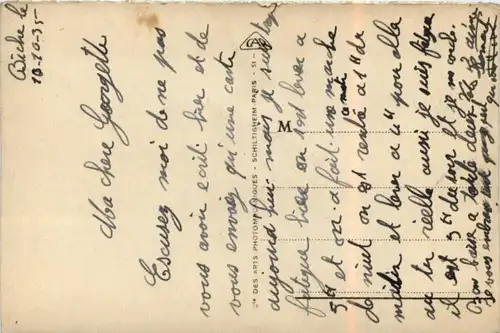 Bitche le
18-10-35
Ma chere Georgette
Excusez moi de ne pas
vous avoir ecrit hier et de
vous envoyer qu'une carte
aujourd'hui mais je suis
fatigué hier on s'est lever a
5 H et on a fait une marche
de nuit on est rentré a 1 H du
matin et lever a 4 H pour alle
au tir réelle aussi je suis fatigue
il est 5 H du soir et je
Bon baiser a toute
je vous embrasse
M
Cie DES ARTS PHOTOMÉCANIQUES - SCHILTIGHEIM PARIS - 51 -